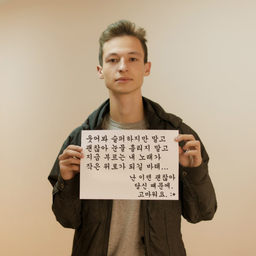 웃어봐 슬퍼하지만 말고
괜찮아 눈물 흘리지 말고
지금 부르는 내 노래가
작은 위로가 되길 바래...
난 이젠 괜찮아
당신 때문에.
고마워요. :*